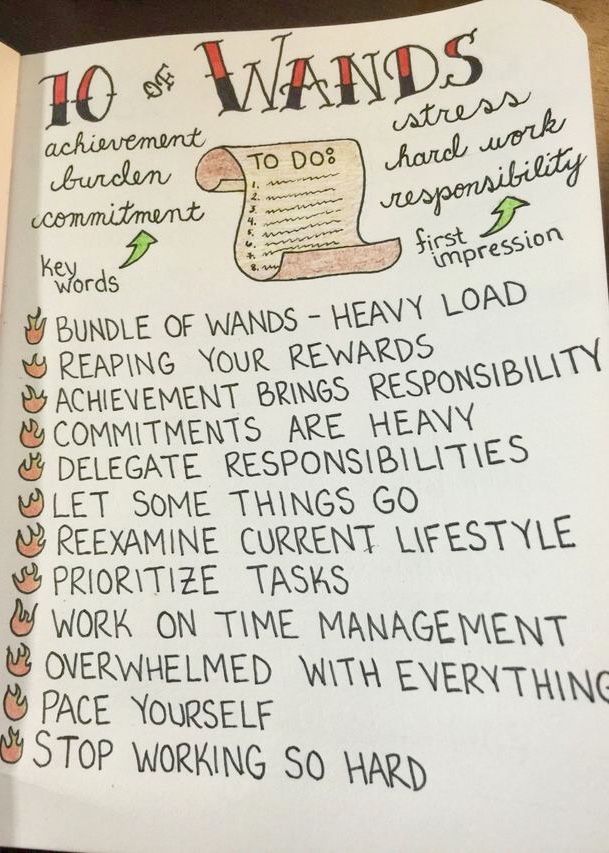 10 OF WANDS
achievement
burden
commitment
key
words
TO DO:
1.
2.
3.
4.
5.
6.
7.
8.
stress
hard work
responsibility
first
impression
BUNDLE OF WANDS - HEAVY LOAD
REAPING YOUR REWARDS
ACHIEVEMENT BRINGS RESPONSIBILITY
COMMITMENTS ARE HEAVY
DELEGATE RESPONSIBILITIES
LET SOME THINGS GO
REEXAMINE CURRENT LIFESTYLE
PRIORITIZE TASKS
WORK ON TIME MANAGEMENT
OVERWHELMED WITH EVERYTHING
PACE YOURSELF
STOP WORKING SO HARD